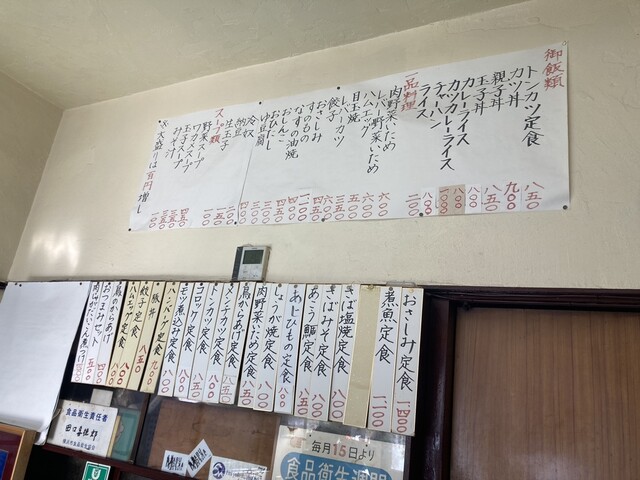 御飯類
トンカツ定食 八五〇
カツ丼 九〇〇
親子丼 八五〇
玉子丼 八〇〇
カレーライス 八〇〇
カツカレーライス
チャーハン 八〇〇
ライス 二〇〇
一品料理
肉野菜いため 六〇〇
レバー野菜いため 六〇〇
ハムエッグ
目玉焼
レバーカツ
餃子
おさしみ
すのもの
なすの油焼
おしんこ
おひたし
ゆ豆腐
冷奴
納豆
生玉子
スープ類
野菜スープ
ワカメスープ
玉子スープ
みそ汁
※大盛りは百円増し
おさしみ定食 一、四〇〇
煮魚定食 一、二〇〇
さば塩焼定食
さばみそ定食
あこう鯛定食
あじひもの定食 八〇〇
しょうが焼定食
肉野菜いため定食 八〇〇
鳥からあげ定食 八五〇
メンチカツ定食 八五〇
トンカツ定食 八五〇
コロッケ定食
モツ煮込み定食 八〇〇
ハンバーグ定食 八〇〇
豚丼 九〇〇
餃子定食 八五〇
ハムエッグ定食 八〇〇
鳥のからあげ
おつまみセット
食品衛生責任者
田口喜徳郎
毎月15日より
食品衛生週間